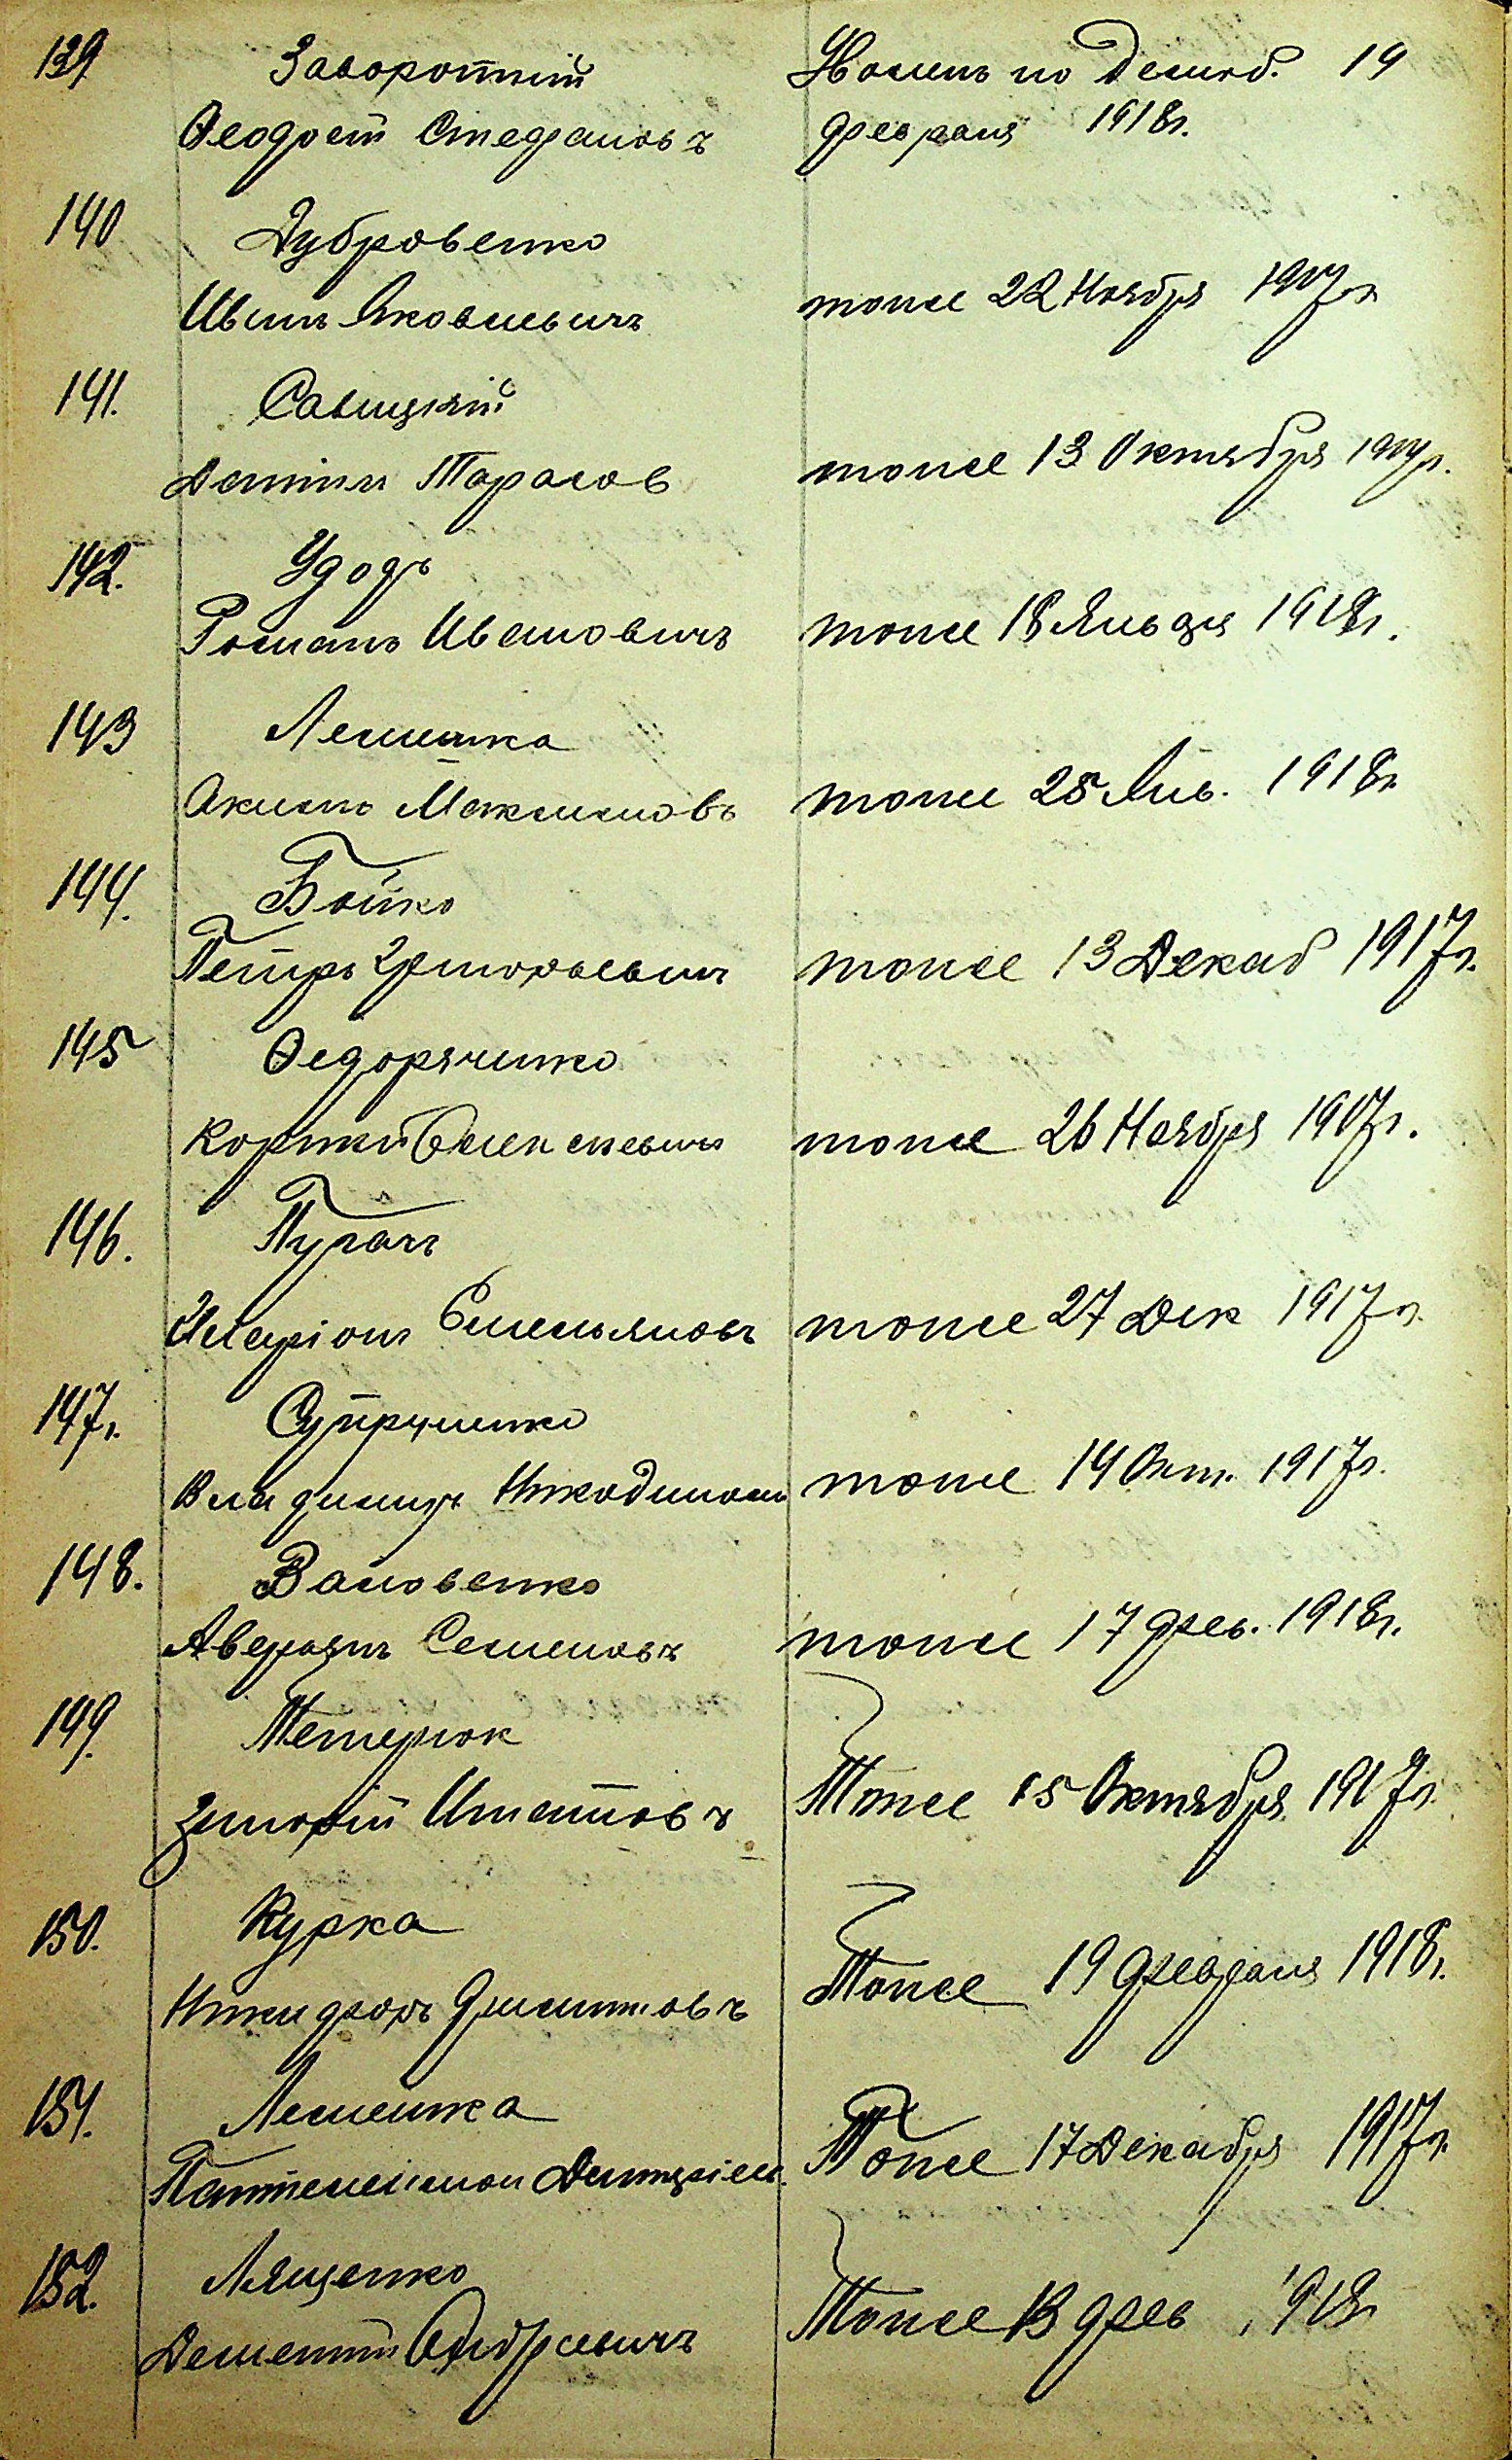 139 Заворотній Уволенъ по Демоб. 19
Феодосій Стефановъ февраля 1918г.
140 Дубровенко
Иванъ Яковлевичъ тоже 22 Ноября 1917г
141. Савицкій
Тарасов тоже 13 Октября 1917г.
142. Удодъ
Романъ Ивановичъ тоже 18 Января 1918г.
143 Лемешка
Акимъ Максимовъ тоже 25 Янв. 1918г.
144. Бойко
Петръ Григорьевич тоже 13 Декаб 1917г.
145 Федоряченко
Корнтй Алексеевичъ тоже 26 Ноября 1917г.
146. Пугачъ
Иларіонъ Емельяновъ тоже 27 Дек 1917г.
147. Супруненко
Владимиръ Никодимовъ тоже 14 Окт. 1917г.
148. Василовенко
Аверьянъ Семеновъ тоже 17 фев. 1918г.
149. Тетерюк
Григорій Игнатовъ Тоже 15 Октября 1917г.
150. Курка
Никифоръ Филиповъ Тоже 19 февраля 1918г.
151. Лемешка
Пантелеймон Дмитріев. Тоже 17 Декабря 1917г.
152. Лященко
Дементій Андреевичъ Тоже 13 фев 1918г